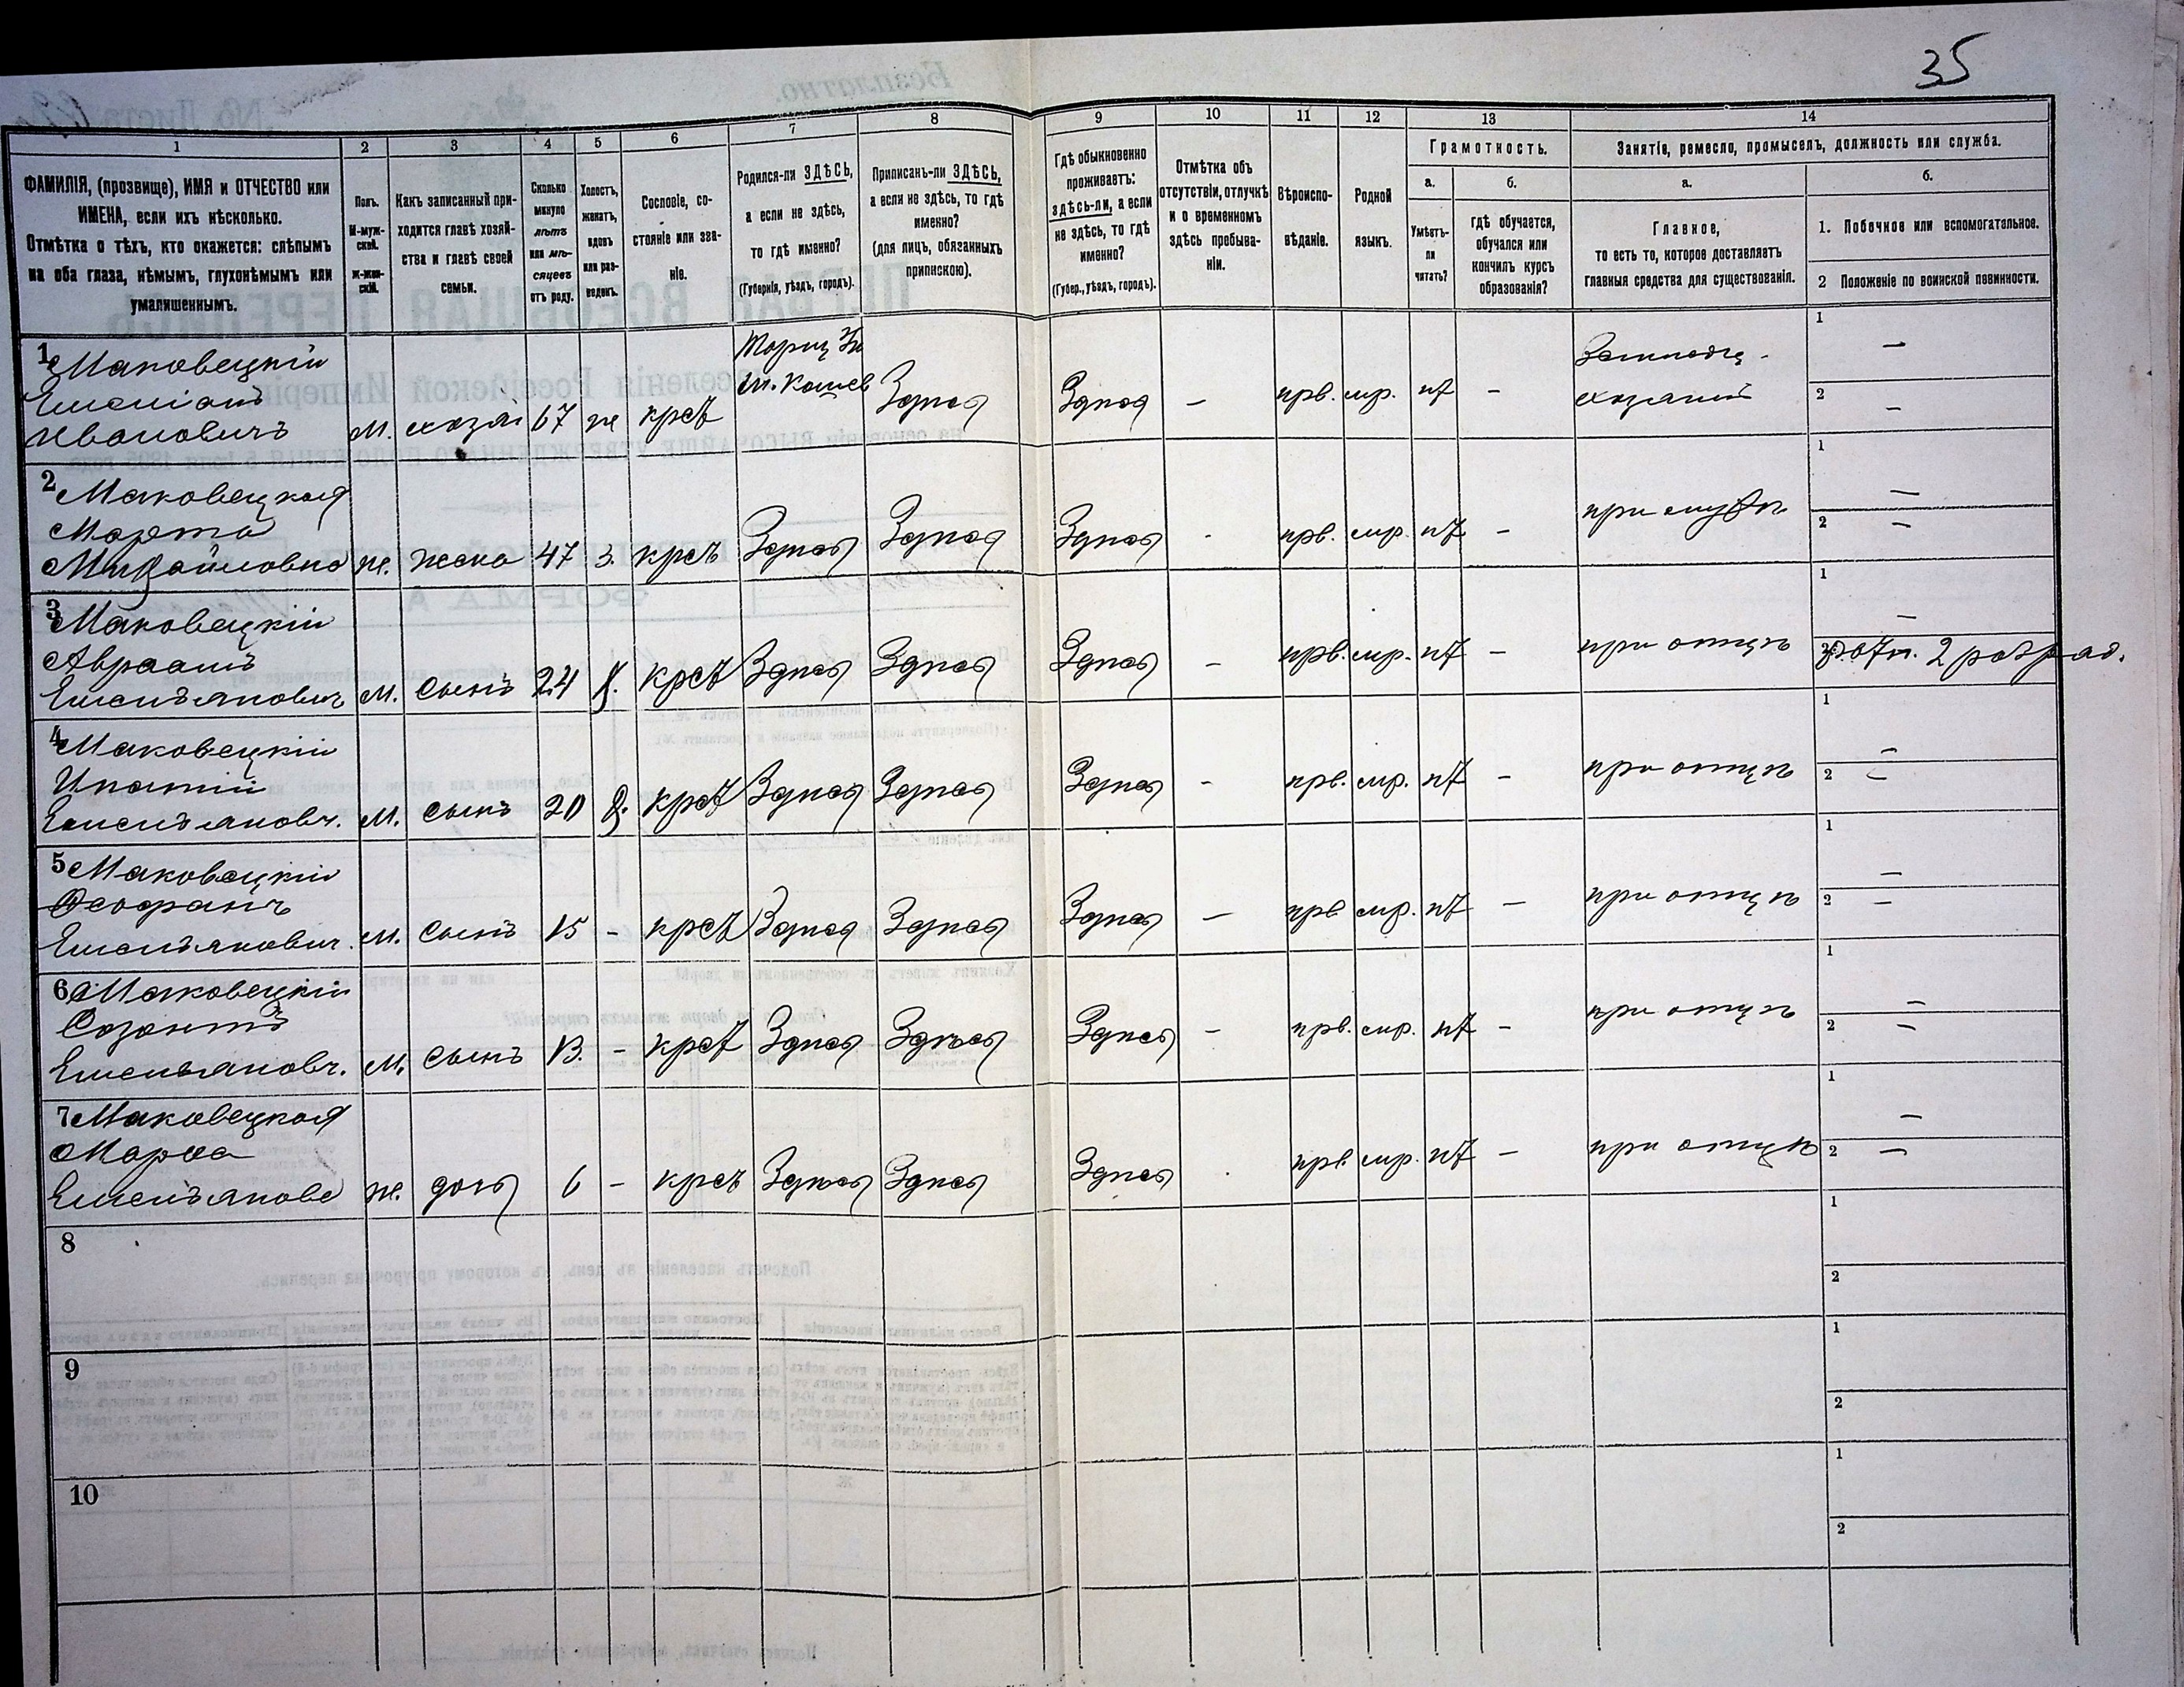 35
1 2 3 4 5 6 7 8 9 10 11 12 13 14
ФАМИЛІЯ, (прозвище), ИМЯ и ОТЧЕСТВО или
ИМЕНА, если ихъ нѣсколько.
Отмѣтка о тѣхъ, кто окажется: слѣпымъ
на оба глаза, нѣмымъ, глухонѣмымъ или
умалишеннымъ.
Полъ.
М-муж-
ской.
Ж-жен-
скій.
Какъ записанный при-
ходится главѣ хозяй-
ства и главѣ своей
семьи.
Сколько
минуло
лѣтъ
или мѣ-
сяцевъ
отъ роду.
Холостъ,
женатъ,
вдовъ
или раз-
веденъ.
Сословіе, со-
стояніе или зва-
ніе.
Родился-ли ЗДѢСЬ,
а если не здѣсь,
то гдѣ именно?
(Губернія, уѣздъ, городъ).
Приписанъ-ли ЗДѢСЬ,
а если не здѣсь, то гдѣ
именно?
(для лицъ, обязанныхъ
припискою).
Гдѣ обыкновенно
проживаетъ:
здѣсь-ли, а если
не здѣсь, то гдѣ
именно?
(Губер., уѣздъ, городъ).
Отмѣтка объ
отсутствіи, отлучкѣ
и о временномъ
здѣсь пребыва-
ніи.
Вѣроиспо-
вѣданіе.
Родной
языкъ.
Грамотность.
а.
Умѣетъ-
ли
читать?
б.
гдѣ обучается,
обучался или
кончилъ курсъ
образованія?
Занятіе, ремесло, промыселъ, должность или служба.
а.
Главное,
то есть то, которое доставляетъ
главныя средства для существованія.
б.
1. Побочное или вспомогательное.
2 Положеніе по воинской повинности.
1 Маковецкій
Емеліанъ
Ивановичъ
М. хозяі 67 же крст Здпсь Здпсь — прв. мр. нт —
1 —
2 —
2 Маковецкая
Марта
Михайловна
ж. жена 47 з. крст Здпсь Здпсь Здпсь - прв. мр. нт - при мужп
1 —
2 —
3 Маковецкій
Авраамъ
Емельянович
М. сынъ 24 х. крст Здпсь Здпсь Здпсь — прв. мр. нт - при отцп
1 —
2 2 разряд.
4 Маковецкій
Ипатій
Емельяновч.
М. сынъ 20 х. крст Здпсь Здпсь Здпсь - прв. мр. нт - при отцп
1 —
2 —
5 Маковецкій
Ѳеофанъ
Емельянович.
М. сынъ 15 - крст Здпсь Здпсь Здпсь — прв мр. нт — при отцп
1 —
2 —
6 Маковецкій
Созонтъ
Емельяновч.
М. сынъ 13. - крст Здпсь Здпсь Здпсь - прв. мр. нт - при отцп
1 —
2 —
7 Маковецкая
Емельянове
ж. дочь 6 - крст Здпсь Здпсь Здпсь прв. мр. нт — при отцп
1 —
2 —
8
1
2
9
1
2
10
1
2